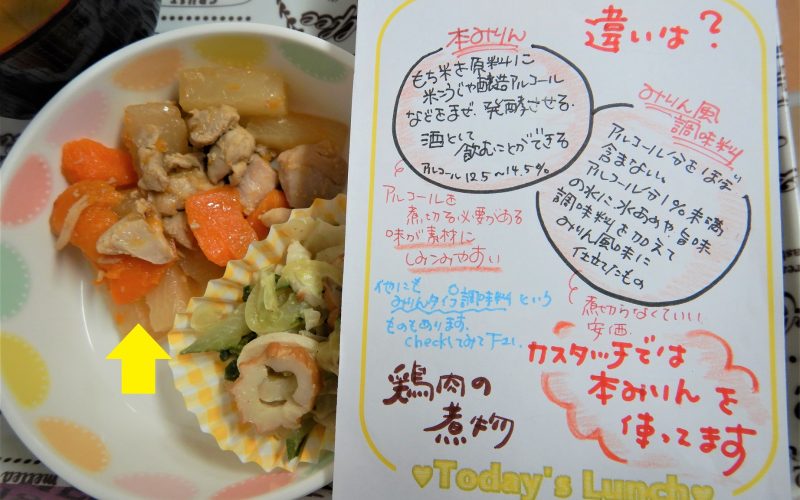 違いは？
本みりん
もち米を原料に
米こうじや醸造アルコール
などをまぜ、発酵させる.
酒として
飲むことができる
アルコール 12.5〜14.5%
アルコールを
煮切る必要がある
味が素材に
しみこみやすい
みりん風
調味料
アルコール分をほぼ
含まない。
アルコール分1%未満
の水に水あめや旨味
調味料を加えて
みりん風味に
仕立てたもの
煮切らなくていい.
安価.
他にも
みりんタイプ調味料という
ものもあります.
checkしてみて下さい.
カスタッチでは
本みりんを
使ってます
鶏肉の
煮物
♥Today's Lunch♥